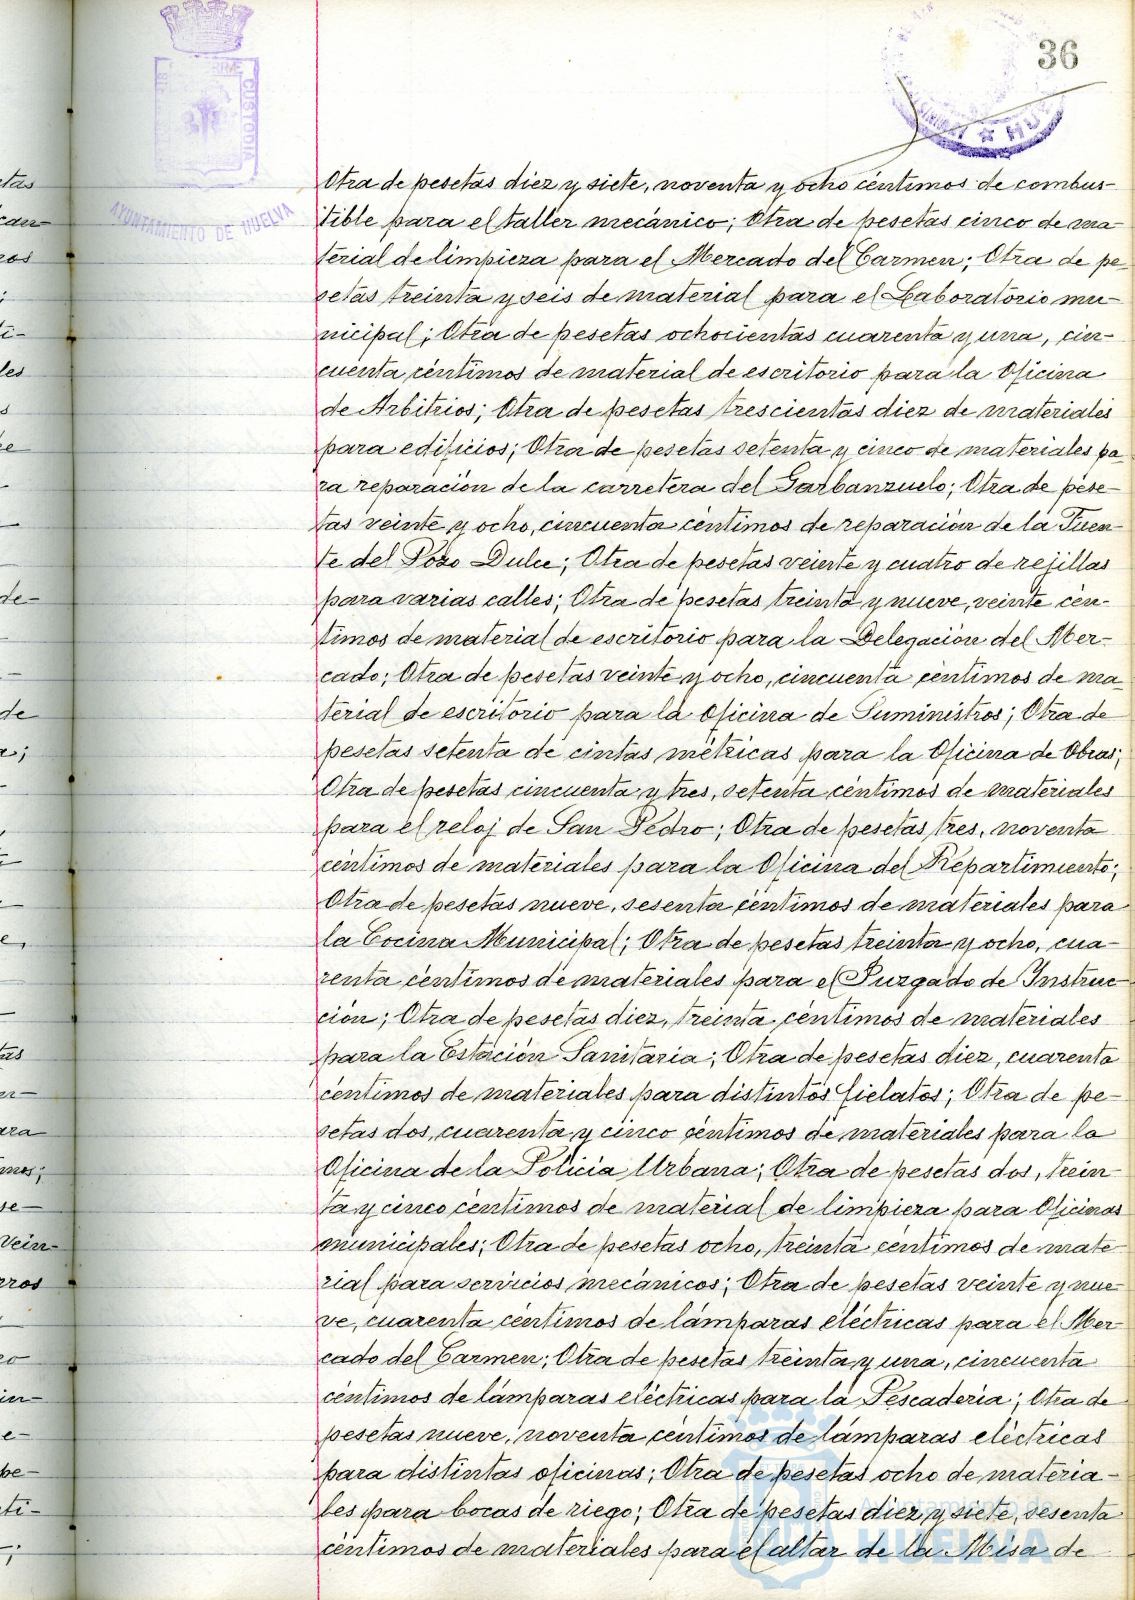 36
AYUNTAMIENTO DE HUELVA
CUSTODIA
HU
Otra de pesetas diez y siete, noventa y ocho céntimos de combus-
tible para el taller mecánico; Otra de pesetas cinco de ma-
terial de limpieza para el Mercado del Carmen; Otra de pe-
setas treinta y seis de material para el Laboratorio mu-
nicipal; Otra de pesetas ochocientas cuarenta y una, cin-
cuenta céntimos de material de escritorio para la Oficina
de Arbitrios; Otra de pesetas trescientas diez de materiales
para edificios; Otra de pesetas setenta y cinco de materiales pa-
ra reparación de la carretera del Garbanzuelo; Otra de pese-
tas veinte y ocho, cincuenta céntimos de reparación de la Fuen-
te del Pozo Dulce; Otra de pesetas veinte y cuatro de rejillas
para varias calles; Otra de pesetas treinta y nueve, veinte cén-
timos de material de escritorio para la Delegación del Mer-
cado; Otra de pesetas veinte y ocho, cincuenta céntimos de ma-
terial de escritorio para la Oficina de Suministros; Otra de
pesetas setenta de cintas métricas para la Oficina de Obras;
Otra de pesetas cincuenta y tres, setenta céntimos de materiales
para el reloj de San Pedro; Otra de pesetas tres, noventa
céntimos de materiales para la Oficina del Repartimiento;
Otra de pesetas nueve, sesenta céntimos de materiales para
la Cocina Municipal; Otra de pesetas treinta y ocho, cua-
renta céntimos de materiales para el Juzgado de Instruc-
ción; Otra de pesetas diez, treinta céntimos de materiales
para la Estación Sanitaria; Otra de pesetas diez, cuarenta
céntimos de materiales para distintos fielatos; Otra de pe-
setas dos, cuarenta y cinco céntimos de materiales para la
Oficina de la Policía Urbana; Otra de pesetas dos, trein-
ta y cinco céntimos de material de limpieza para Oficinas
municipales; Otra de pesetas ocho, treinta céntimos de mate-
rial para servicios mecánicos; Otra de pesetas veinte y nue-
ve, cuarenta céntimos de lámparas eléctricas para el Mer-
cado del Carmen; Otra de pesetas treinta y una, cincuenta
céntimos de lámparas eléctricas para la Pescadería; Otra de
pesetas nueve, noventa céntimos de lámparas eléctricas
para distintas oficinas; Otra de pesetas ocho de materia-
les para bocas de riego; Otra de pesetas diez y siete, sesenta
céntimos de materiales para el altar de la Misa de
Ayuntamiento de
HUELVA